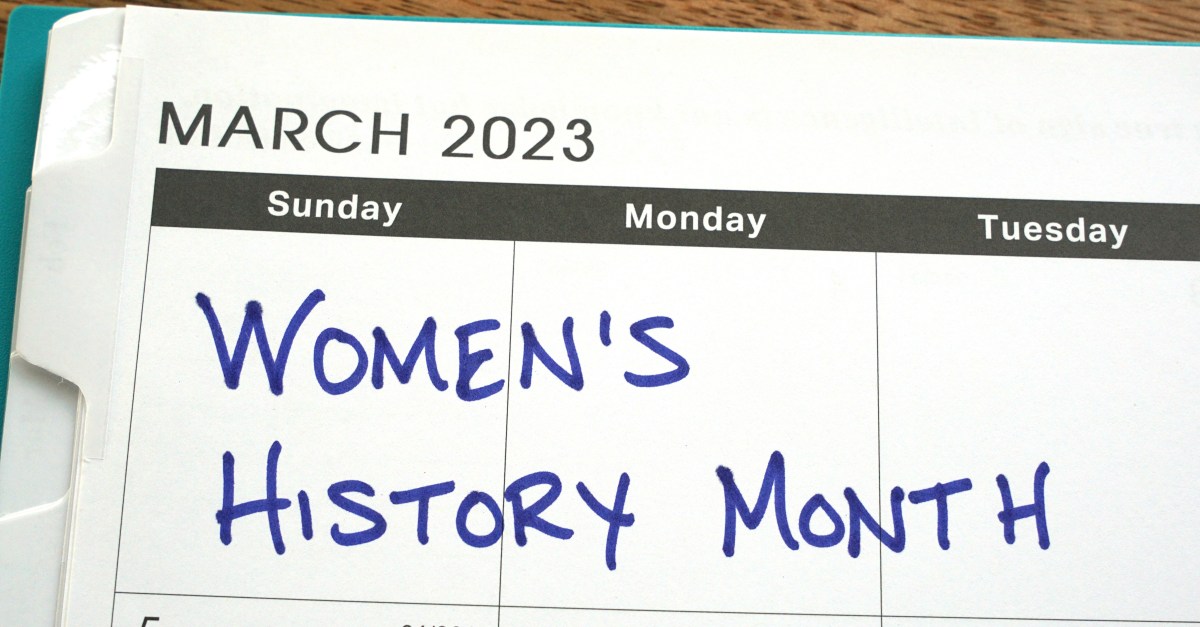 MARCH 2023
Sunday Monday Tuesday
WOMEN'S
HISTORY MONTH
5